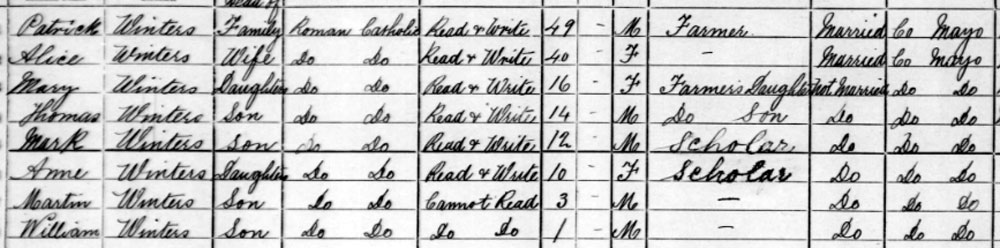 Head of
Patrick Winters Family Roman Catholic Read & Write 49 - M Farmer Married Co Mayo
Alice Winters Wife Do Do Read & Write 40 - F - Married Co Mayo
Mary Winters Daughter Do Do Read & Write 16 - F Farmers Daughter Not Married Do Do
Thomas Winters Son Do Do Read & Write 14 - M Do Son Do Do Do
Mark Winters Son Do Do Read & Write 12 - M Scholar Do Do Do
Anne Winters Daughter Do Do Read & Write 10 - F Scholar Do Do Do
Martin Winters Son Do Do Cannot Read 3 - M - Do Do Do
William Winters Son Do Do Do Do 1 - M - Do Do Do